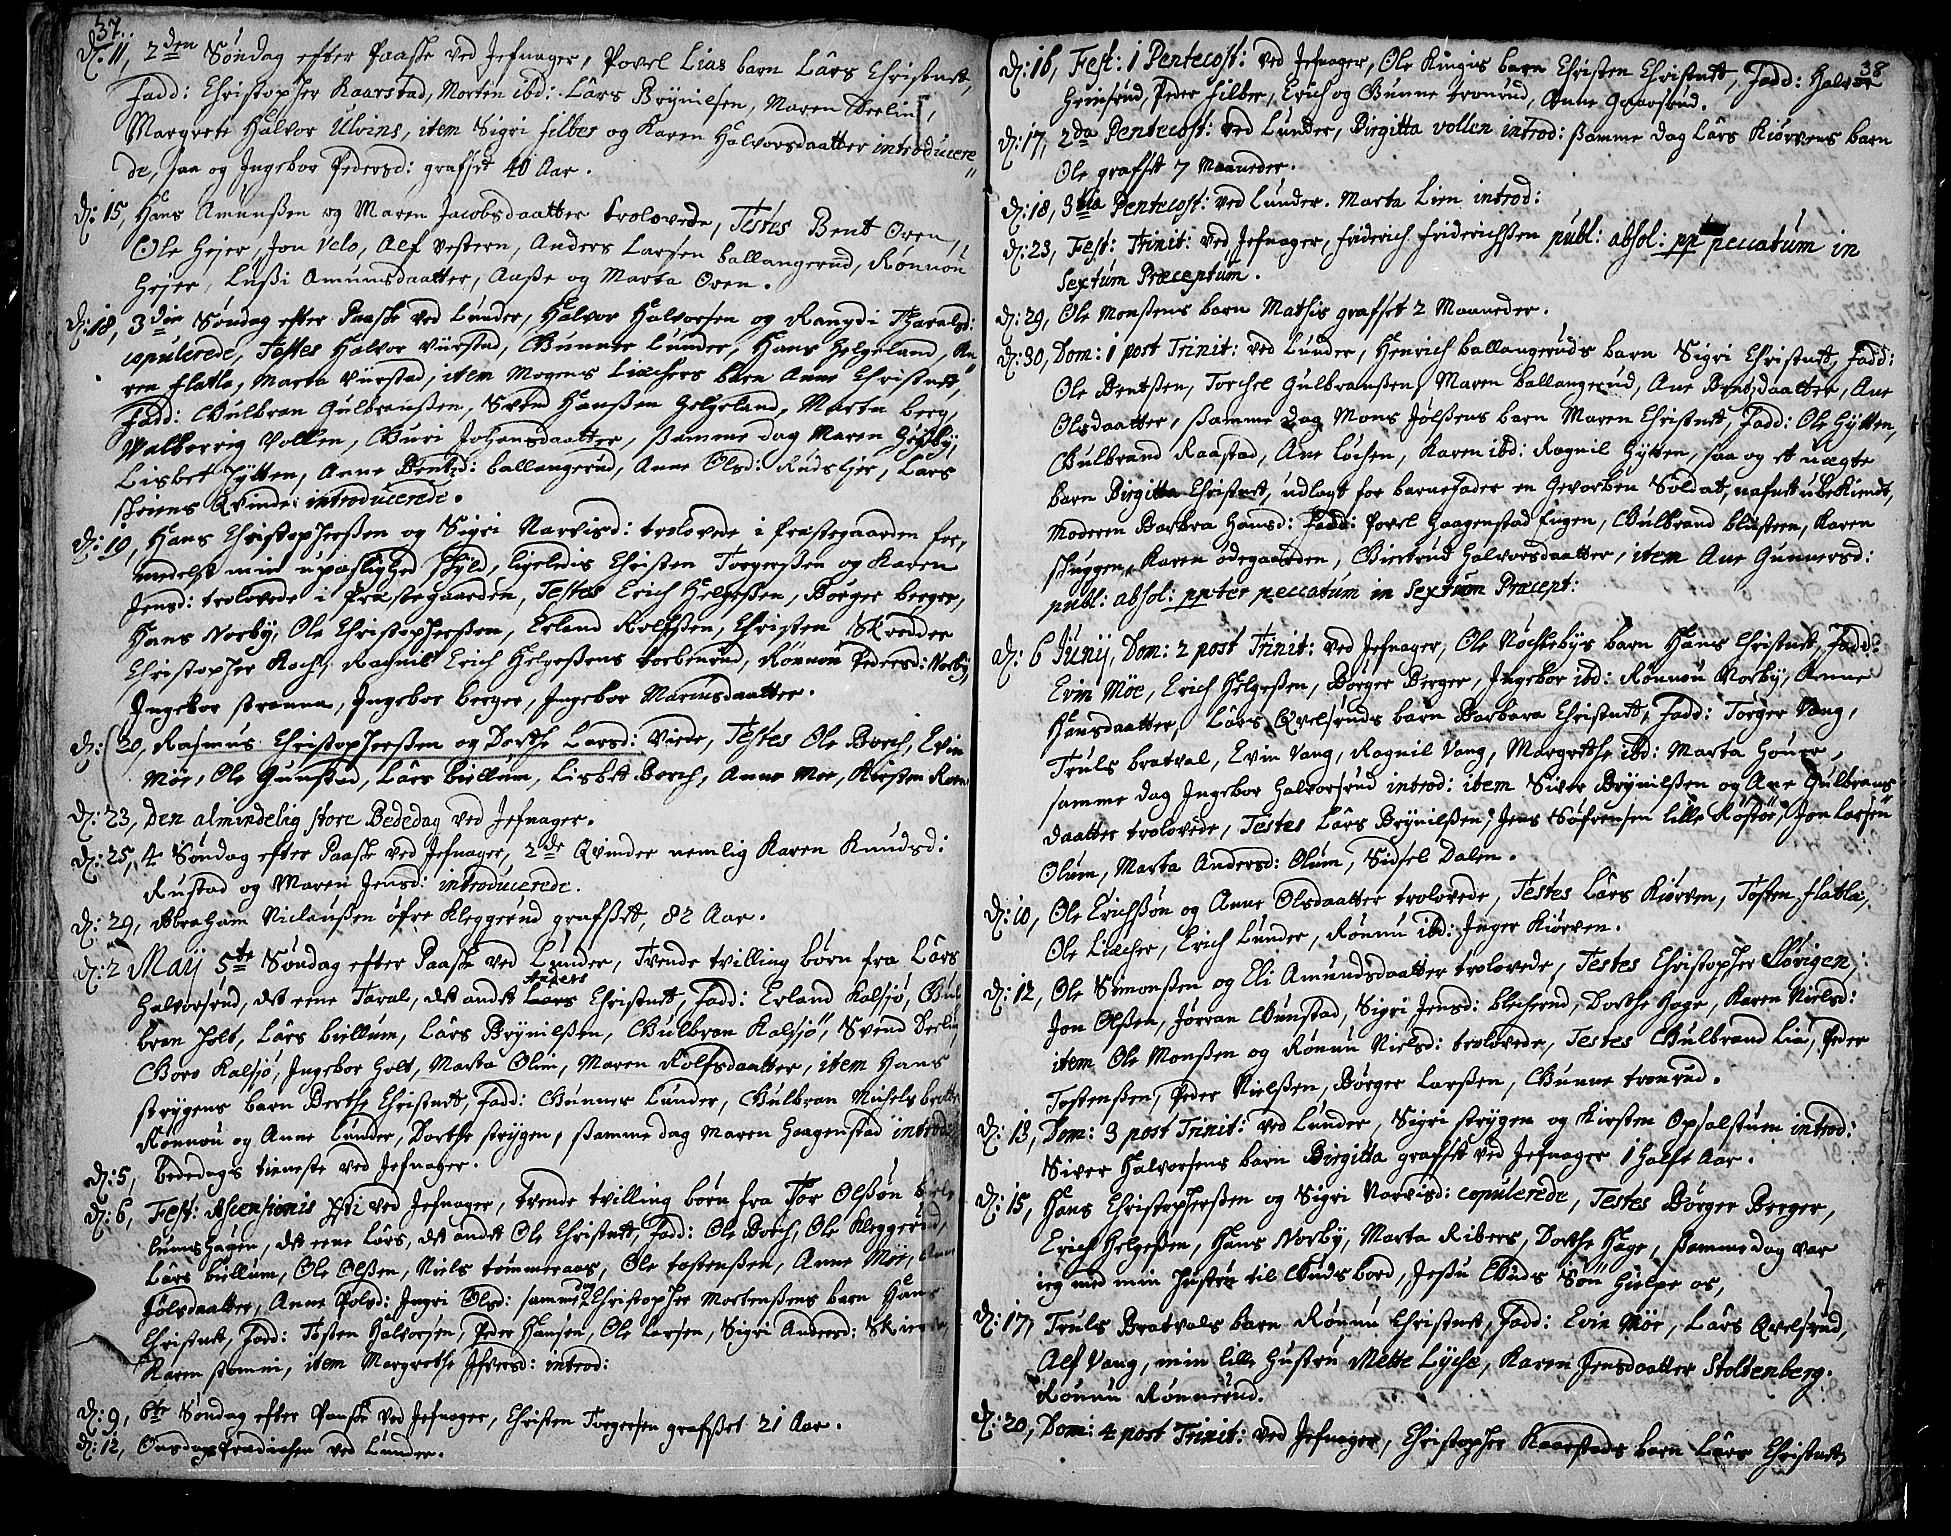 37.
D: 11, 2den Søndag efter Paaske ved Jefnager, Povel Lias barn Lârs Christnet,
Fadd: Christopher Kaarstad, Morten ibd: Lârs Brÿnilsen, Maren
Margrete Halvor Ulvins, item Sigri Silbes og Karen Halvorsdaatter introducere
de, saa og Ingebor Pedersd: grafset 40 Aar.
D: 15, Hans Amunßen og Maren Jacobsdaatter trolovede, Testes Bent Oren,
Ole Hejer, Jon Velo, Alf Vestern, Anders Larsen ballangerud, Rønnou
Hejer, Lußi Amunsdaatter, Aaße og Marta Oren.
D: 18, 3die Søndag efter Paaske ved Lunder, Halvor Halvorsen og Rangdi Tharalsd:
copulerede, Testes Halvor Viirstad, Gunner Lunder, Hans Helgeland, Ka
ren flatla, Marta Viirstad, item Mogens Liachers barn Anne Christnet,
Fadd: Gulbran Gulbranßen, Svend Hanßen Helgeland, Marta berg,
Valborrig Vollen, Guri Johansdaatter, ßamme dag Maren
Lisbet Hÿtten, Anne Bentsd: ballangerud, Anne Olsd: Rudshier, Lars
Koiens Qvinde: introducerede.
D: 19, Hans Christopherßen og Sigri Narvisd: trolovede i Præstegaarden for,
medelst min upaslighed skÿld, ligeledis Christen Torgerßen og Karen
Jensd: trolovede i Præstegaarden, Testes Erich Helgeßen, Børger berger,
Hans Norbÿ, Ole Christopherßen, Erland Rolfßen, Christen Skredder
Christopher Koch, Ragnil Erich Helgeßens torberud, Rønnou Pedersd: Norbÿ,
Ingebor stranna, Ingebor berger, Ingebor Mariusdaatter.
D: 20, Rasmus Christopherßen og Dorthe Larsd: Viede, Testes Ole Borch, Evin
Moe, Ole Gunstad, Lârs Biellum, Lisbet Borch, Anne Moe, Kirsten Ram
D: 23, Den almindelig store Bededag ved Jefnager.
D: 25, 4 Søndag efter Paaske ved Jefnager, 2de Qvinder nemlig Karen Knudsd:
Rustad og Maren Jensd: introducerede.
D: 29, Abraham Niclaußen øfre Kleggerud grafsæt, 82 Aar.
D: 2 Maÿ 5te Søndag efter Paaske ved Lunder, Tvende tvilling børn fra Lârs
Halvorsrud, det eene Taral, det andet Anders Christnet, Fadd: Erland Kalsjø, Gul
bran Holt, Lârs biellum, Lârs Brÿnilßen, Gulbran Kalsjø, Svend
Goro Kalsjø, Ingebor Holt, Marta Olim, Maren Rolfsdaatter, item Hans
strÿgens barn Berthe Christnet, Fadd: Gunner Lunder, Gulbran Michelsbratte
Rønnou og Anne Lunder, Dorthe strÿgen, ßamme dag Maren Haagenstad introd:
D: 5, Bededags tieneste ved Jefnager.
D: 6, Fest: Ascensionis Xsti ved Jefnager, tvende tvilling børn fra Tor Olßøn biel
lumshagen, det eene Lârs, det andet Ole Christnet, Fadd: Ole Borch, Ole Kleggerud,
Lârs biellum, Ole Olßen, Niels tømmeraas, Ole tostenßen, Anne Moe,
Jølsdaatter, Anne Polsd: Ingri Olsd: samme dag Christopher Mortenßens barn Hans
Christnet, Fadd: Tosten Halvorsen, Peder Hansen, Ole Larsen, Sigri Andersd:
Karen stomni, item Margrethe Ifversd: introd:
D: 9, 6te Søndag efter Paaske ved Jefnager, Christen Torgersen grafset 21 Aar.
D: 12, Onsdags prædichen ved Lunder.
38
D: 16, Fest: 1 Pentecost: ved Jefnager, Ole Ringis barn Christen Christnet, Fadd: Halvor
Heimsrud, Peder Silber, Erich og Gunne tronrud, Anne Graarsrud.
D: 17, 2da Pentecost: ved Lunder, Birgitta vollen introd: ßamme dag Lârs Kiørvens barn
Ole grafset 7 Maaneder.
D: 18, 3tia Pentecost: ved Lunder. Marta Lien introd:
D: 23, Fest: Trinit: ved Jefnager, friderich friderichßen publ: absol: pp peccatum in
Sextum Præceptum.
D: 29, Ole Monßens barn Mathis grafset 2 Maaneder.
D: 30, Dom: 1 post Trinit: ved Lunder, Henrich ballangeruds barn Sigri Christnet, Fadd:
Ole Bentßen, Torchel Gulbranßen, Maren ballangerud, Ane Bentsdaatter, Ane
Olsdaatter, ßamme dag Mons Jølßens barn Maren Christnet, Fadd: Ole Hÿtten,
Gulbrand Raastad, Ane Lochen, Karen ibd: Ragnil Hÿtten, saa og et uægte
barn Birgitta Christnet, udlagt for barnefader en Gevorben Soldat, nafnet ubekiendt,
Moderen Barbra Hansd: Fadd: Povel Haagenstad Eugen, Gulbrand blustern, Karen
skuggen, Karen ødegaarden, Giertrud Halvorsdaatter, item Ane Gunnersd:
publ: absol: ppter peccatum in Sextum Præcept:
D: 6 Junij, Dom: 2 post Trinit: ved Jefnager, Ole Nochlebÿs barn Hans Christnet, Fadd:
Evin Moe, Erich Helgeßen, Børger Berger, Ingebor ibd: Rønnou Norbÿ, Anne
Hansdaatter, Lârs Qvelsruds barn Barbara Christnet, Fadd: Torger Vang,
Truls bratval, Evin Vang, Ragnil Vang, Margrethe ibd: Marta Houer,
samme dag Ingebor Halvorsrud introd: item Siver Brÿnilßen og Ane Gulbrans
daatter trolovede, Testes Lârs Brÿnilßen, Jens Søfrensen lille Røstøe, Jon Larsen
Olum, Marta Andersd: Olum, Sidsel Dalen.
D: 10, Ole Erichßøn og Anne Olsdaatter trolovede, Testes Lârs Kiørven, Tosten flatla,
Ole Liacher, Erich Lunder, Rønnu ibd: Inger Kiørven.
D: 12, Ole Simonßen og Eli Amundsdaatter trolovede, Testes Christopher Slørigen,
Jon Olßen, Jørran Gunstad, Sigri Jensd: blecherud, Dorthe Hage, Karen Nielsd:
item Ole Monßen og Rønnu Nielsd: trolovede, Testes Gulbrand Lia, Peder
Tostenßen, Peder Nielßen, Børger Larßen, Gunne tronrud.
D: 13, Dom: 3 post Trinit: ved Lunder, Sigri strÿgen og Kirsten Opsalstuen introd:
Siver Halvorsens barn Birgitta grafset ved Jefnager 1 halft Aar.
D: 15, Hans Christopherßen og Sigri Narvisd: copulerede, Testes Børger Berger,
Erich Helgeßen, Hans Norbÿ, Marta Ribers, Dorthe Hage, ßamme dag var
ieg med min Hustru til Guds bord, Jesu Guds Søn hielpe os,
D: 17, Truls Bratvals barn Rønnu Christnet, Fadd: Evin Moe, Lârs Qvelsrud,
Alf Vang, min lille Hustru Mette Lÿche, Karen Jensdaatter Stoltenberg.
Rønnu Rønnerud.
D: 20, Dom: 4 post Trinit: ved Jefnager, Christopher Kaarstads barn Lârs Christnet,